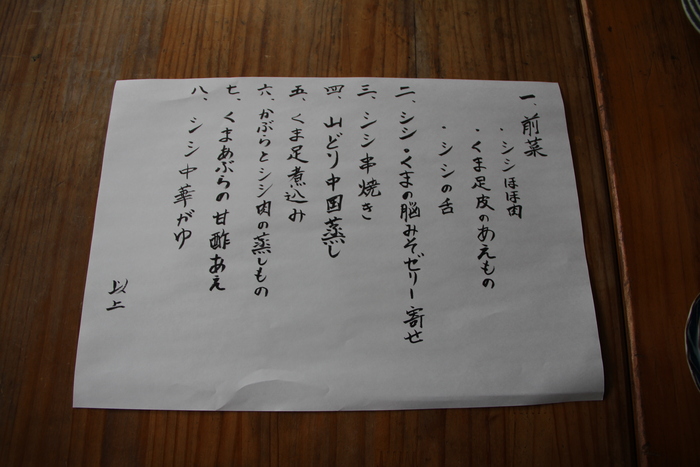 一、前菜
・シシほほ肉
・くま足皮のあえもの
・シシの舌
二、シシ・くまの脳みそゼリー寄せ
三、シシ串焼き
四、山どり中国蒸し
五、くま足煮込み
六、かぶらとシシ肉の蒸しもの
七、くまあぶらの甘酢あえ
八、シシ中華がゆ
以上